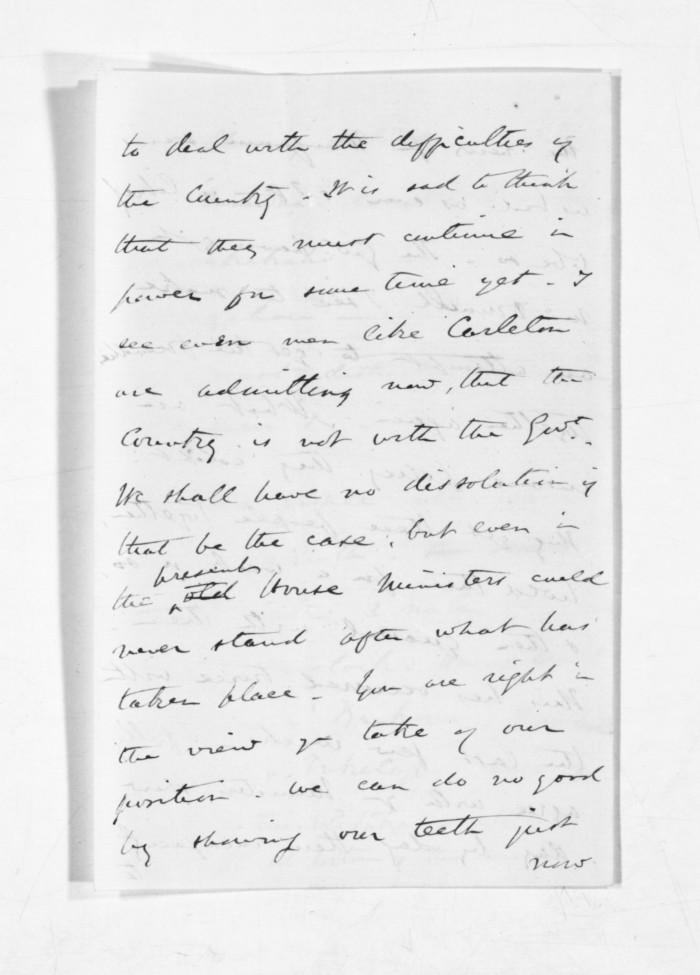 to deal with the difficulties of
the Country - It is sad to think
that they must continue in
power for some time yet - I
see even men like Carleton
are admitting now, that the
Country is not with the Govt.
We shall have no dissolution if
that be the case, but even in
the present old House Ministers could
never stand after what has
taken place - You are right in
the view yo take of our
position - we can do no good
by showing our teeth just
now